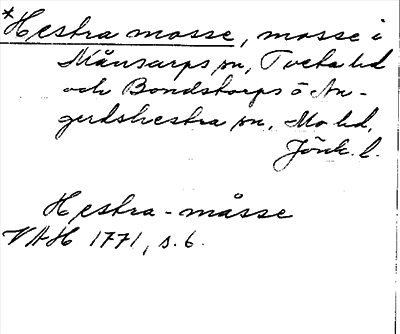 *Hestra mosse, mosse i
Månsarps sn, Tveta hd
och Bondstorps o An-
gerdshestra sn, Mo hd,
Jönk. l.
Hestra-måsse
VAH 1771, s. 6.